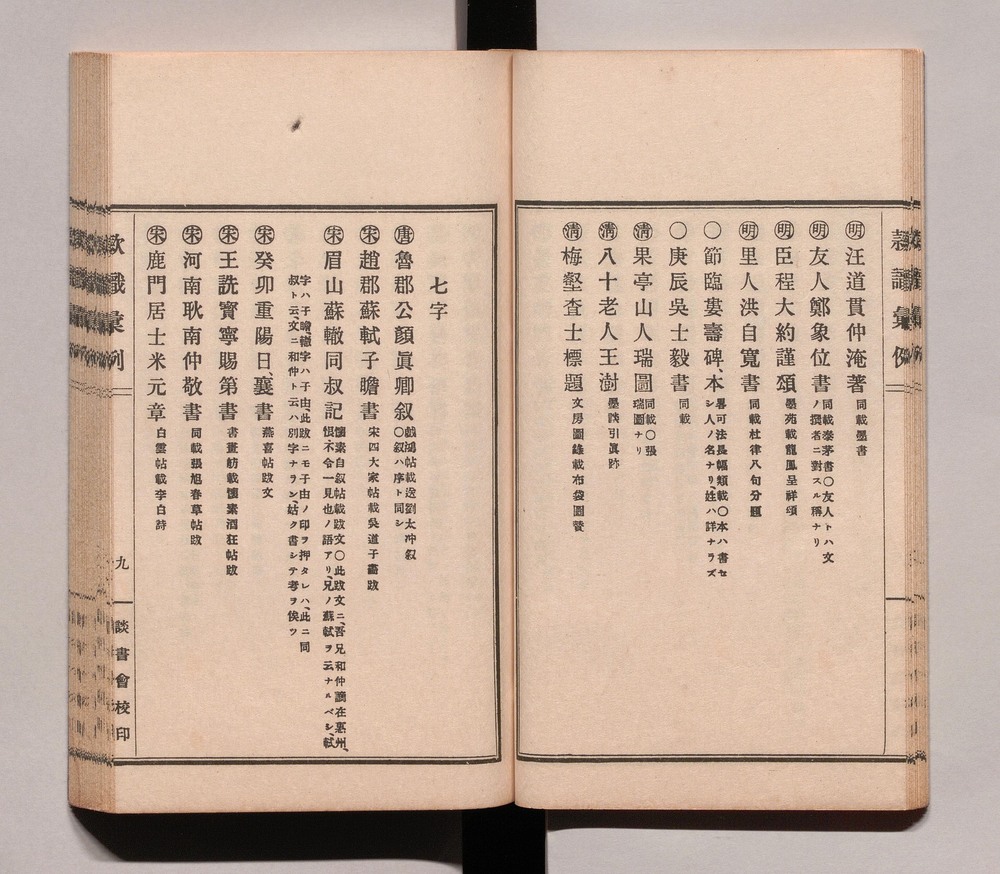 ㊐明 汪道貫仲淹著 同載墨書
明 友人鄭象位書 同載泰茅書〇友人トハ文ノ撰者ニ對スル稱ナリ
明 臣程大約謹頌 墨苑載龍鳳呈祥頌
明 里人洪自寬書 同載杜律八句分題
〇節臨婁壽碑、本 畧可法長幅類載〇本ハ書セシ人ノ名ナリ、姓ハ詳ナラズ
〇庚辰吳士毅書 同載
清 果亭山人瑞圖 同載〇張瑞圖ナリ
清 八十老人王澍 墨談引眞跡
清 梅壑査士標題 文房圖錄載布袋圖贊
七字
唐 魯郡公顏眞卿叙 戲鴻帖載送劉太冲叙〇叙ハ序ト同シ
宋 趙郡蘇軾子瞻書 宋四大家帖載吳道子畵跋
宋 眉山蘇轍同叔記 懷素自叙帖載跋文〇此跋文ニ、吾兄和仲謫在惠州、恨不令一見也ノ語アリ、兄ノ蘇軾ヲ云ナルベシ、軾
字ハ子瞻、轍字ハ子由、此跋ニモ子由ノ印ヲ押タレハ、此ニ同叔ト云、文ニ和仲ト云ハ別字ナラン、姑ク書シテ考ヲ俟ツ
宋 癸卯重陽日、襄書 蕪喜帖跋文
宋 王詵寶寧賜第書 書畫舫載懷素酒狂帖跋
宋 河南耿南仲敬書 同載張旭春草帖跋
宋 鹿門居士米元章 白雲帖載李白詩
款識彙例
九
談書會校印